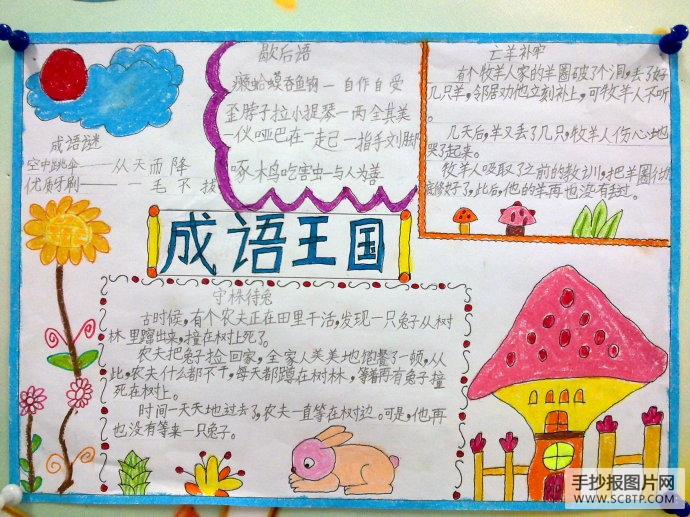 歇后语
癞蛤蟆吞鱼钩—自作自受
歪脖子拉小提琴—两全其美
一伙哑巴在一走己—指手刘脚
啄木鸟吃害虫—与人为善
亡羊补牢
有个牧羊人家的羊圈破了个洞,丢了好
几只羊,邻居劝他立刻补上,可牧羊人不听
。
几天后,羊又丢了几只,牧羊人伤心地
哭了起来。
牧羊人吸取了之前的教训,把羊圈仔
修好了,此后,他的羊再也没有丢过。
成语谜
空中跳伞——从天而降
优质牙刷——一毛不拔
成语王国
守株待兔
古时候,有个农夫正在田里干活,发现一只兔子从树
林里蹿出来,撞在树上死了。
农夫把兔子捡回家,全家人美美地饱餐了一顿,从
此,农夫什么都不干,每天都蹲在树林,等着再有兔子撞
死在树上。
时间一天天地过去了,农夫一直等在树边。可是,他再
也没有等来一只兔子。
手抄报图片网
WWW.SCBTP.COM